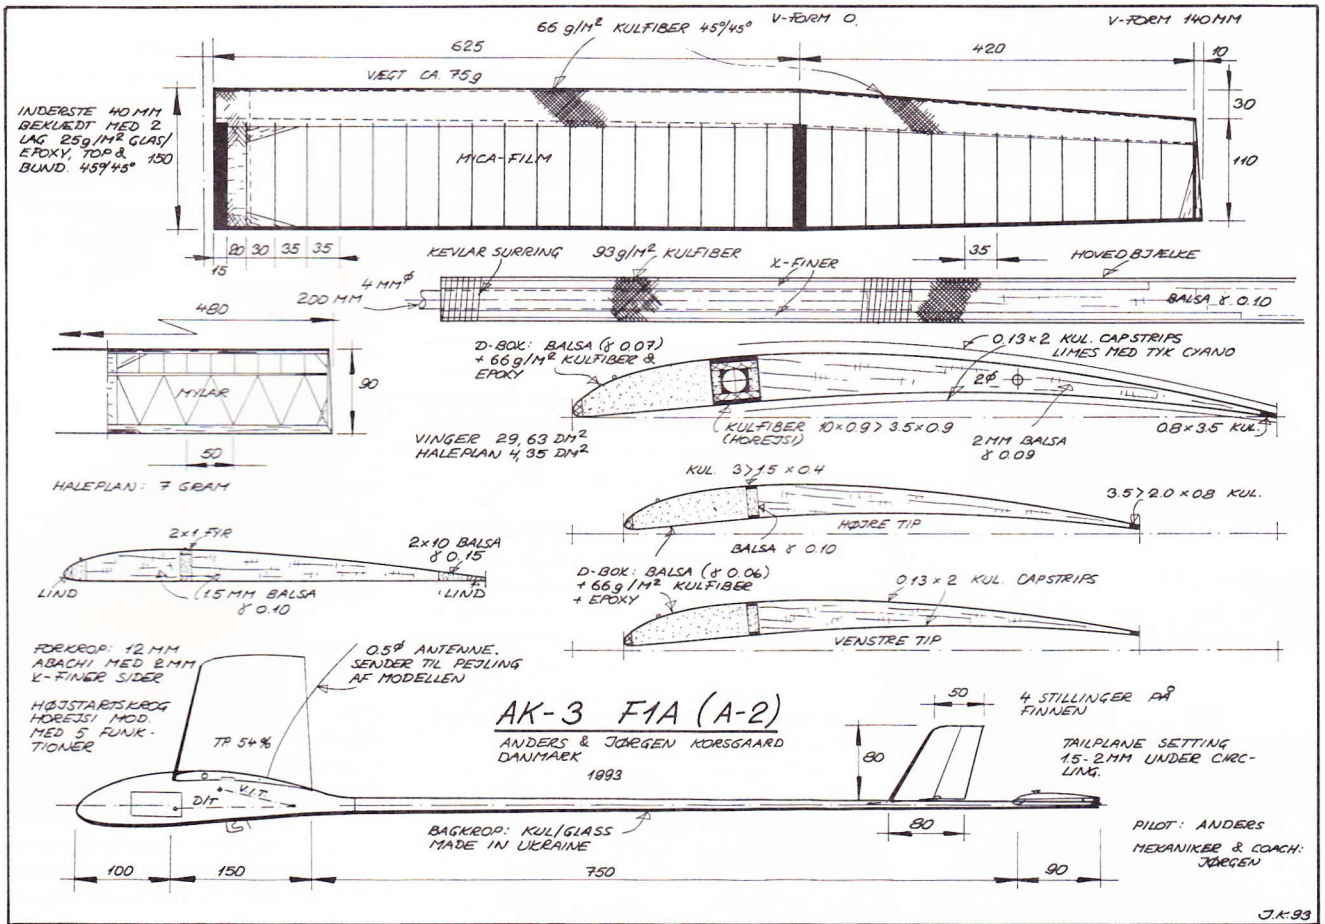 66 g/M² KULFIBER 45°/45°
V-FORM 0.
V-FORM 140 MM
625
420
10
VÆGT CA. 75 g
30
INDERSTE 40 MM
BEKLÆDT MED 2
LAG 25g/M² GLAS/
EPOXY, TOP &
BUND. 45°/45°
150
MICA-FILM
110
15
20
30
35
35
KEVLAR SURRING
93 g/M² KULFIBER
X-FINER
35
HOVEDBJÆLKE
4 MM ø
200 MM
BALSA ɣ 0.10
480
MYLAR
90
50
HALEPLAN: 7 GRAM
D-BOX: BALSA (ɣ 0.07)
+ 66 g/M² KULFIBER &
EPOXY
0.13 × 2 KUL. CAPSTRIPS
LIMES MED TYK CYANO
2ø
VINGER 29,63 DM²
HALEPLAN 4,35 DM²
KULFIBER 10×0.9 > 3.5×0.9
(HOREJSI)
2 MM BALSA
ɣ 0.09
0.8 × 3.5 KUL.
KUL. 3 > 1.5 × 0.4
3.5 > 2.0 × 0.8 KUL.
HØJRE TIP
BALSA ɣ 0.10
2×1 FYR
2×10 BALSA
ɣ 0.15
LIND
1.5 MM BALSA
ɣ 0.10
LIND
D-BOX: BALSA (ɣ 0.06)
+ 66 g/M² KULFIBER
+ EPOXY
0.13 × 2 KUL. CAPSTRIPS
VENSTRE TIP
FORKROP: 12 MM
ABACHI MED 2 MM
X-FINER SIDER
HØJSTARTSKROG
HOREJSI MOD.
MED 5 FUNK-
TIONER
0.5ø ANTENNE.
SENDER TIL PEJLING
AF MODELLEN
TP. 54%
V.I.T.
D/T
AK-3 F1A (A-2)
ANDERS & JØRGEN KORSGAARD
DANMARK
1993
50
80
80
4 STILLINGER PÅ
FINNEN
TAILPLANE SETTING
1.5-2 MM UNDER CIRC-
LING.
BAGKROP: KUL/GLASS
MADE IN UKRAINE
PILOT: ANDERS
MEKANIKER & COACH:
JØRGEN
100
150
750
90
J.K. 93